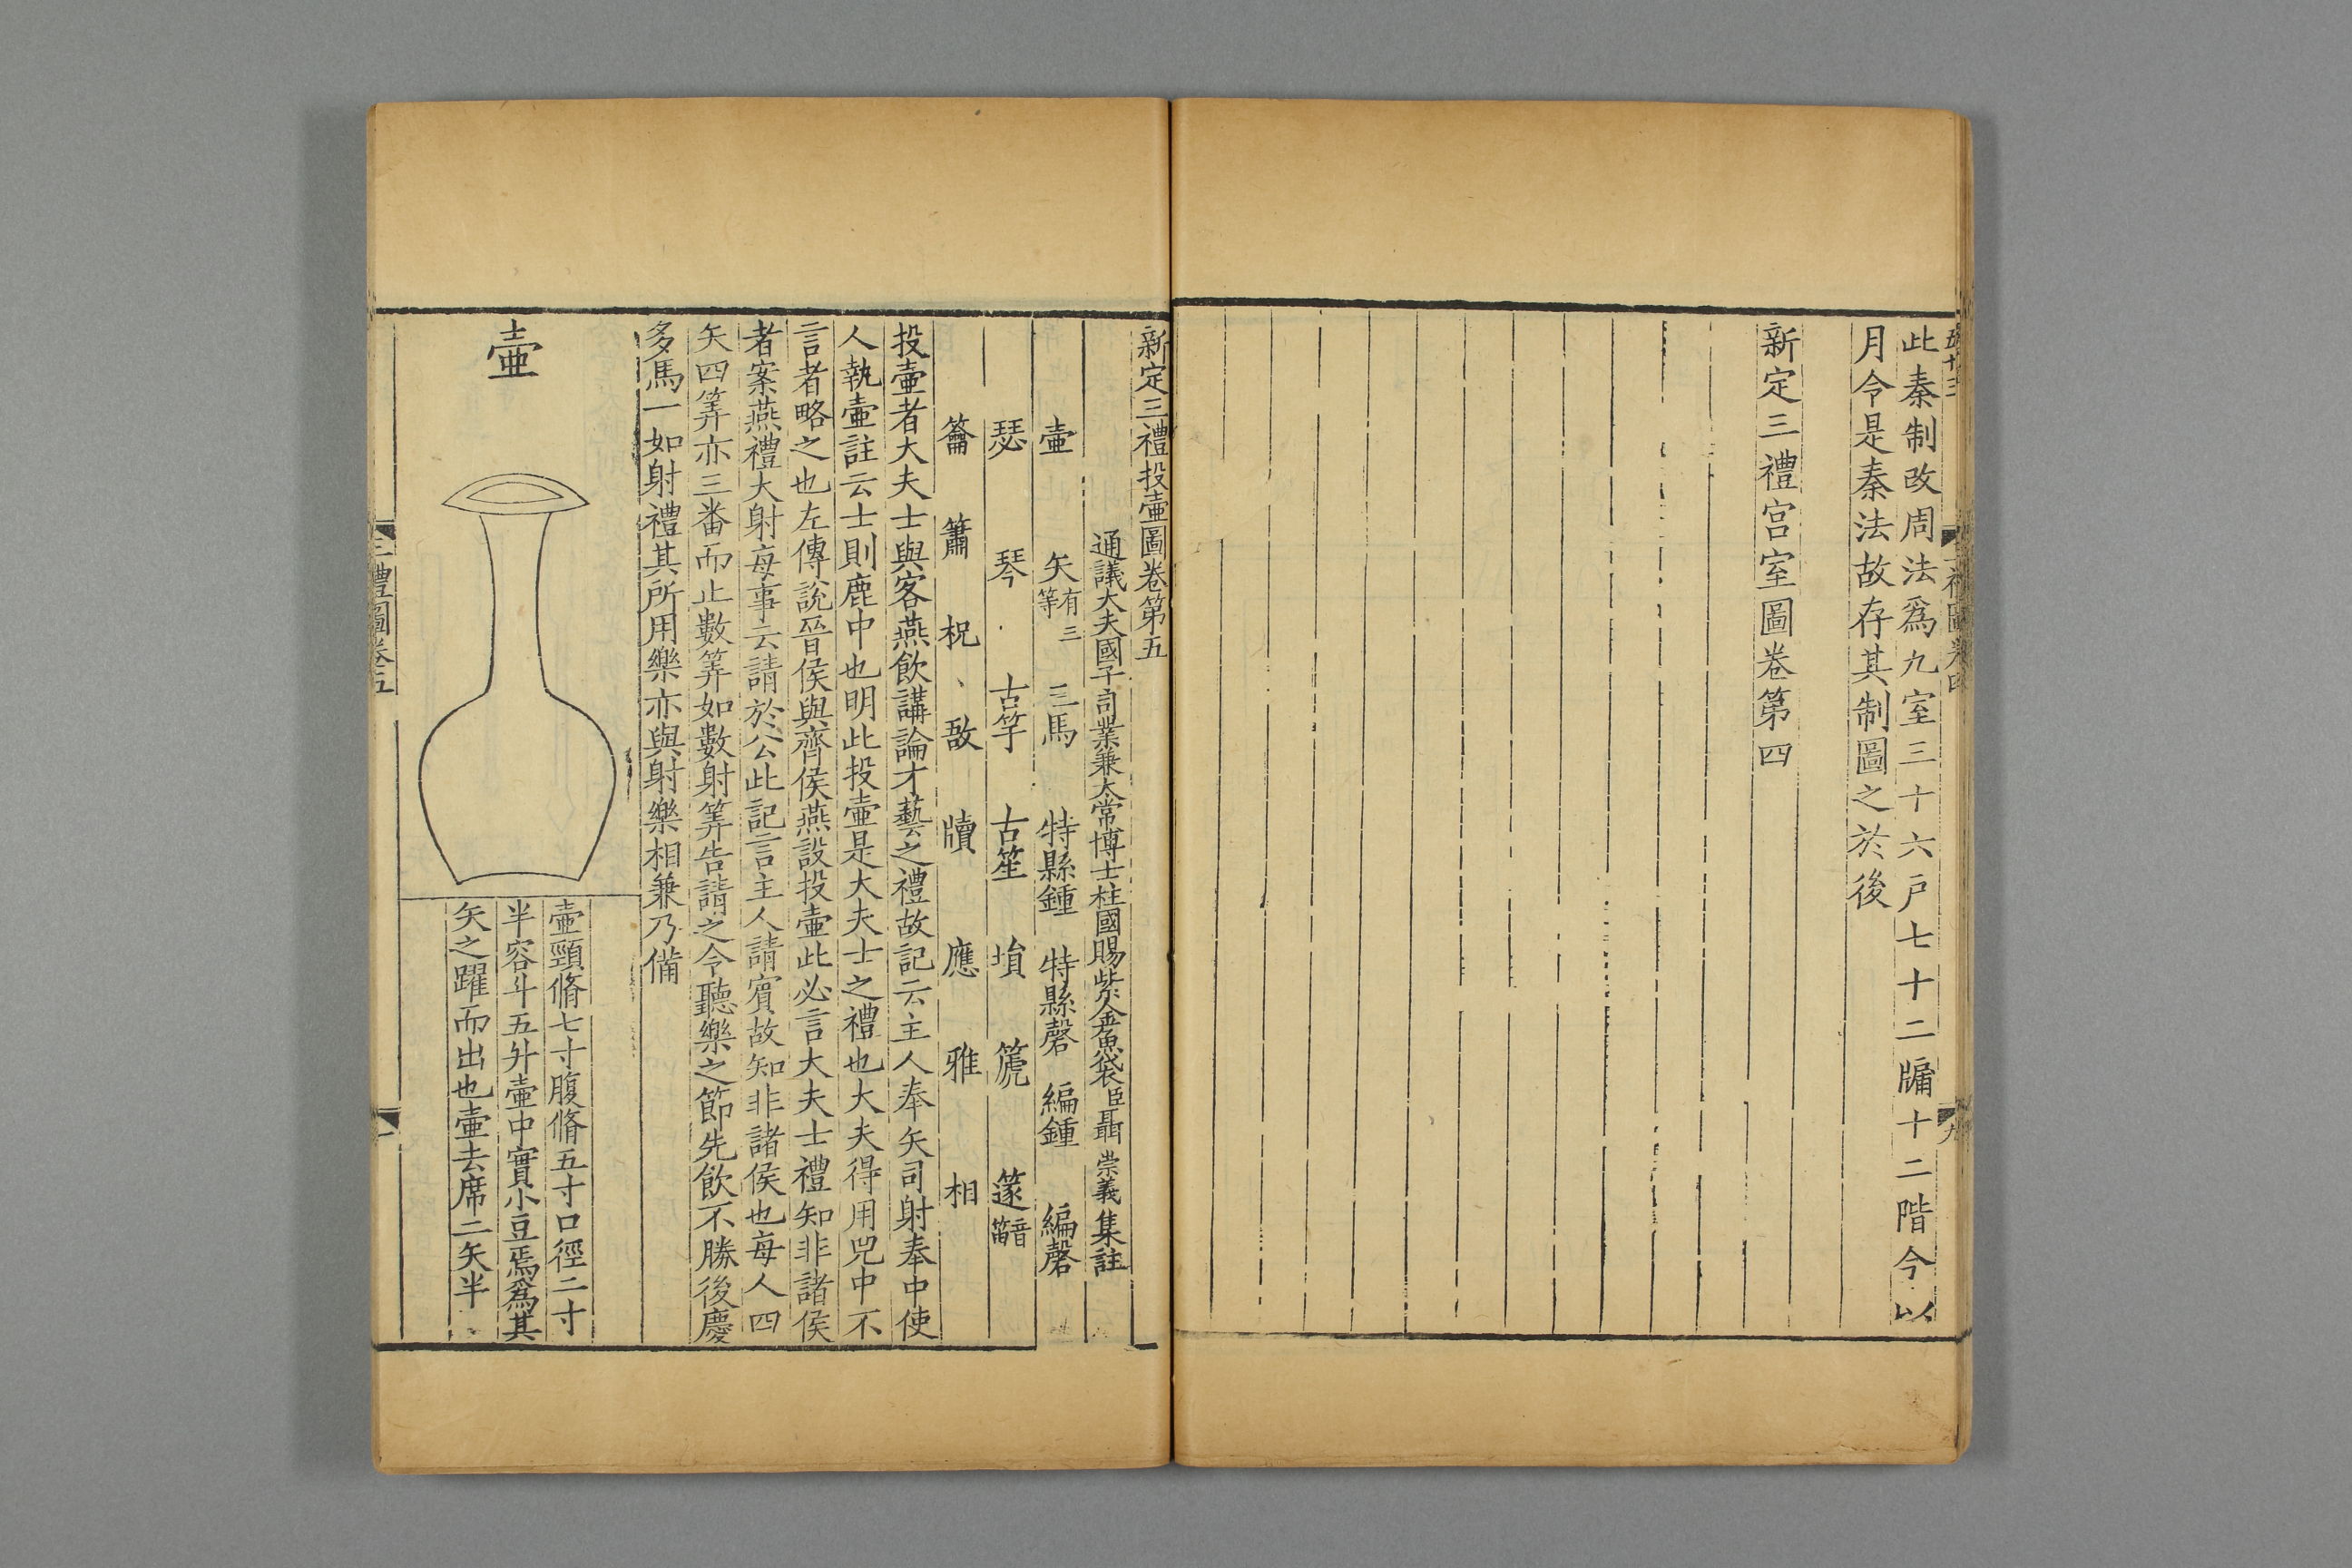 此秦制改周法爲九室三十六戶七十二牖十二階今以
月令是秦法故存其制圖之於後
新定三禮宫室圖卷第四
新定三禮投壷圖卷第五
通議大夫國子司業兼太常博士柱國賜紫金魚袋臣聶 崇義 集註
壷 矢有三等 三馬 特縣鍾 特縣磬 編鍾 編磬
瑟 琴 古竽 古笙 塤 篪 篴音笛
籥 簫 柷 敔 牘 應 雅 相
投壷者大夫士與客燕飲講論才藝之禮故記云主人奉矢司射奉中使
人執壷註云士則鹿中也明此投壷是大夫士之禮也大夫得用兕中不
言者略之也左傳說晉侯與齊侯燕設投壷此必言大夫士禮知非諸侯
者案燕禮大射每事云請於公此記言主人請賓故知非諸侯也每人四
矢四筭亦三番而止數筭如數射筭告請之令聽樂之節先飲不勝後慶
多馬一如射禮其所用樂亦與射樂相兼乃備
壷
壷頸脩七寸腹脩五寸口徑二寸
半容斗五升壷中實小豆焉爲其
矢之躍而出也壷去席二矢半
三禮圖卷五
一